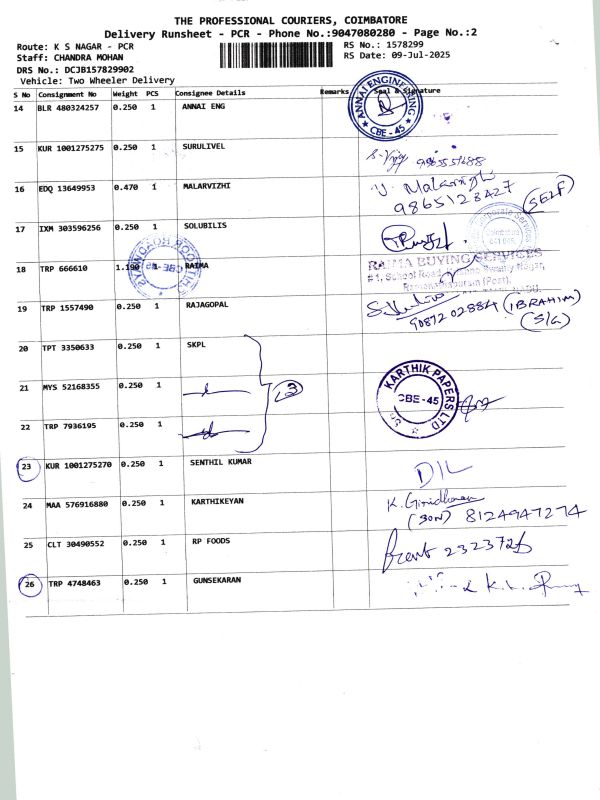 THE PROFESSIONAL COURIERS, COIMBATORE
Delivery Runsheet - PCR - Phone No.:9047080280 - Page No.:2
Route: K S NAGAR - PCR
RS No.: 1578299
Staff: CHANDRA MOHAN
RS Date: 09-Jul-2025
DRS No.: DCJB157829902
Vehicle: Two Wheeler Delivery
S No Consignment No Weight PCS Consignee Details Remarks Seal & Signature
14 BLR 480324257 0.250 1 ANNAI ENG
ANNAI ENGINEERING
CBE - 45
15 KUR 1001275275 0.250 1 SURULIVEL
16 EDQ 13649953 0.470 1 MALARVIZHI
9865128427 (SELF)
17 IXM 303596256 0.250 1 SOLUBILIS
18 TRP 666610 1.190 1 RAIMA
RAIMA BUYING SERVICES
# 1, School Road, Nagar,
19 TRP 1557490 0.250 1 RAJAGOPAL
9087202884 (IBRAHIM)
(S/G)
20 TPT 3350633 0.250 1 SKPL
21 MYS 52168355 0.250 1
3
KARTHIK PAPERS LTD
CBE - 45
22 TRP 7936195 0.250 1
23 KUR 1001275270 0.250 1 SENTHIL KUMAR
D/L
24 MAA 576916880 0.250 1 KARTHIKEYAN
K. Giridharan
(SON) 8124947274
25 CLT 30490552 0.250 1 RP FOODS
26 TRP 4748463 0.250 1 GUNSEKARAN